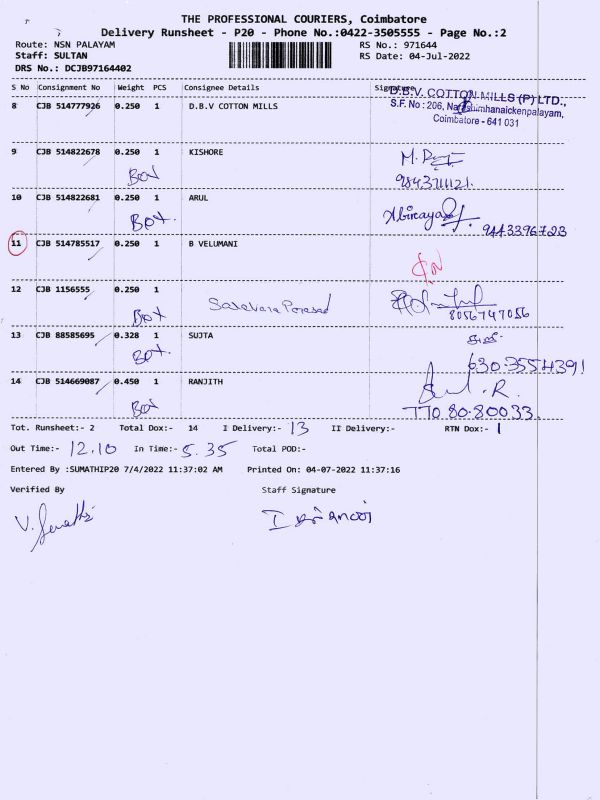 THE PROFESSIONAL COURIERS, Coimbatore
Delivery Runsheet - P20 - Phone No.:0422-3505555 - Page No.:2
Route: NSN PALAYAM RS No.: 971644
Staff: SULTAN RS Date: 04-Jul-2022
DRS No.: DCJB97164402
S No Consignment No Weight PCS Consignee Details Signature
D.B.V. COTTON MILLS (P) LTD.,
8 CJB 514777926 0.250 1 D.B.V COTTON MILLS
S.F. No : 206, Narashimhanaickenpalayam,
Coimbatore - 641 031
9 CJB 514822678 0.250 1 KISHORE
Box 9843711121.
10 CJB 514822681 0.250 1 ARUL
Box. 9443396723
11 CJB 514785517 0.250 1 B VELUMANI
12 CJB 1156555 0.250 1
Box 8056747056
13 CJB 88585695 0.328 1 SUJTA
Box. 630-3554391
14 CJB 514669087 0.450 1 RANJITH
Box 770 80-80033
Tot. Runsheet:- 2 Total Dox:- 14 I Delivery:- 13 II Delivery:- RTN Dox:- 1
Out Time:- 12.10 In Time:- 5.35 Total POD:-
Entered By :SUMATHIP20 7/4/2022 11:37:02 AM Printed On: 04-07-2022 11:37:16
Verified By Staff Signature